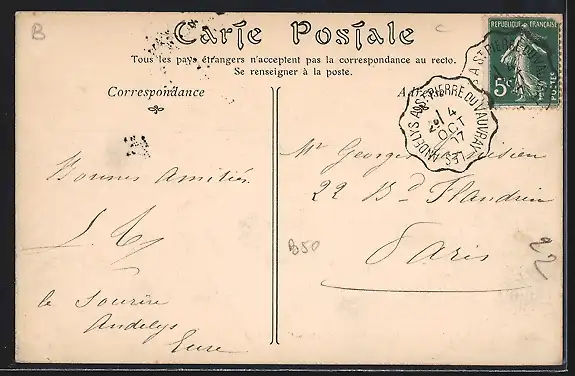 B
Carte Postale
Tous les pays étrangers n'acceptent pas la correspondance au recto.
Se renseigner à la poste.
Correspondance
REPUBLIQUE FRANÇAISE
5c
POSTES
LES ANDELYS A ST PIERRE DU VAUVRAY
4
OCT
Bonnes Amitiés
le Sourire
Andelys
Eure
Mr Georges
22 Bd Flandrin
Paris
B50
22